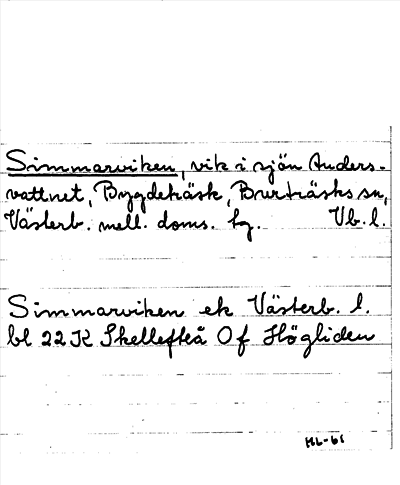 Simmarviken, vik i sjön Anders-
vattnet, Bygdeträsk, Burträsks sn,
Västerb. mell. doms. tg. Vb. l.
Simmarviken ek Västerb. l.
bl 22 K Skellefteå Of Högliden
HL-61